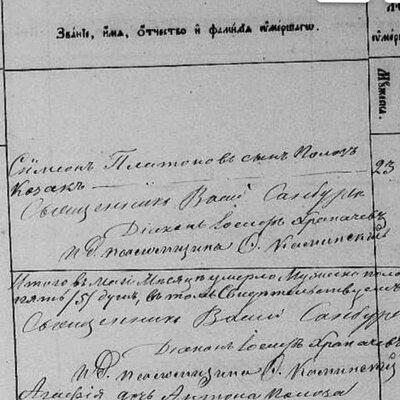 Званіе, имя, отчество и фамилія умершаго.
Мужеска.
Симеонъ Платоновъ сынъ Полозъ 23
Козакъ
Священникъ Васил Самбур
Діаконъ Іосифъ Храпачевъ
И Д. псаломщика Ѳ. Каминскій
Итого въ маи Месяце умерло Мужеска пола
пять /5/ душъ, въ томъ Свидетельствуемъ
Священникъ Васил Самбур
Діаконъ Іосифъ Храпачевъ
И Д. псаломщика Ѳ. Каминскій
Антона Полоза